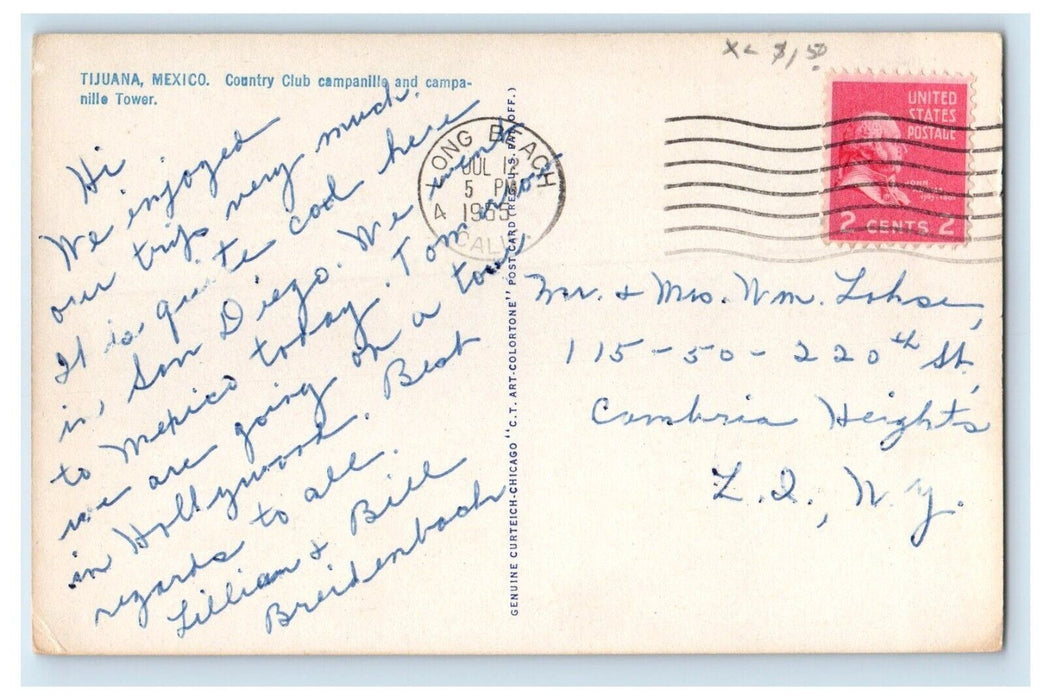 XL $1.50
TIJUANA, MEXICO. Country Club campanille and campa-
nille Tower.
Hi
We enjoyed
our trip very much.
It is quite cool here
in San Diego. We went
to Mexico today. Tomorrow
we are going on a tour
in Hollywood. Best
regards to all.
Lillian & Bill
Breidenbach
GENUINE CURTEICH-CHICAGO "C.T. ART-COLORTONE" POST CARD (REG. U.S. PAT. OFF.)
LONG BEACH
JUL 12
5 PM
1955
4 CALIF.
UNITED
STATES
POSTAGE
2 CENTS 2
Mr. & Mrs. Wm. Lohse,
115-50-220th St,
Cambria Heights
L.I., N.Y.